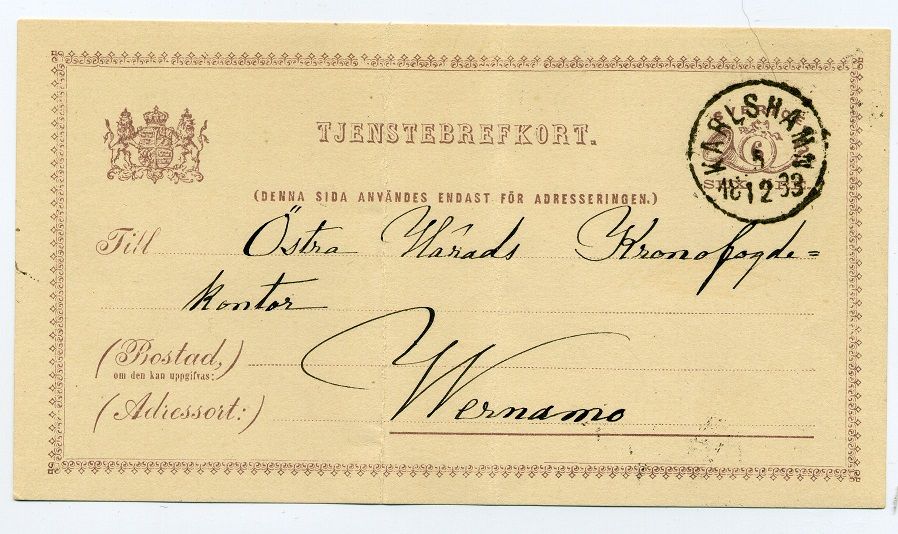 TJENSTEBREFKORT.
(DENNA SIDA ANVÄNDES ENDAST FÖR ADRESSERINGEN.)
KARLSHAMN
5
18 12 83
6
Till Östra Härads Kronofogde=
kontor
(Bostad,)
om den kan uppgifvas:
(Adressort:) Wernamo